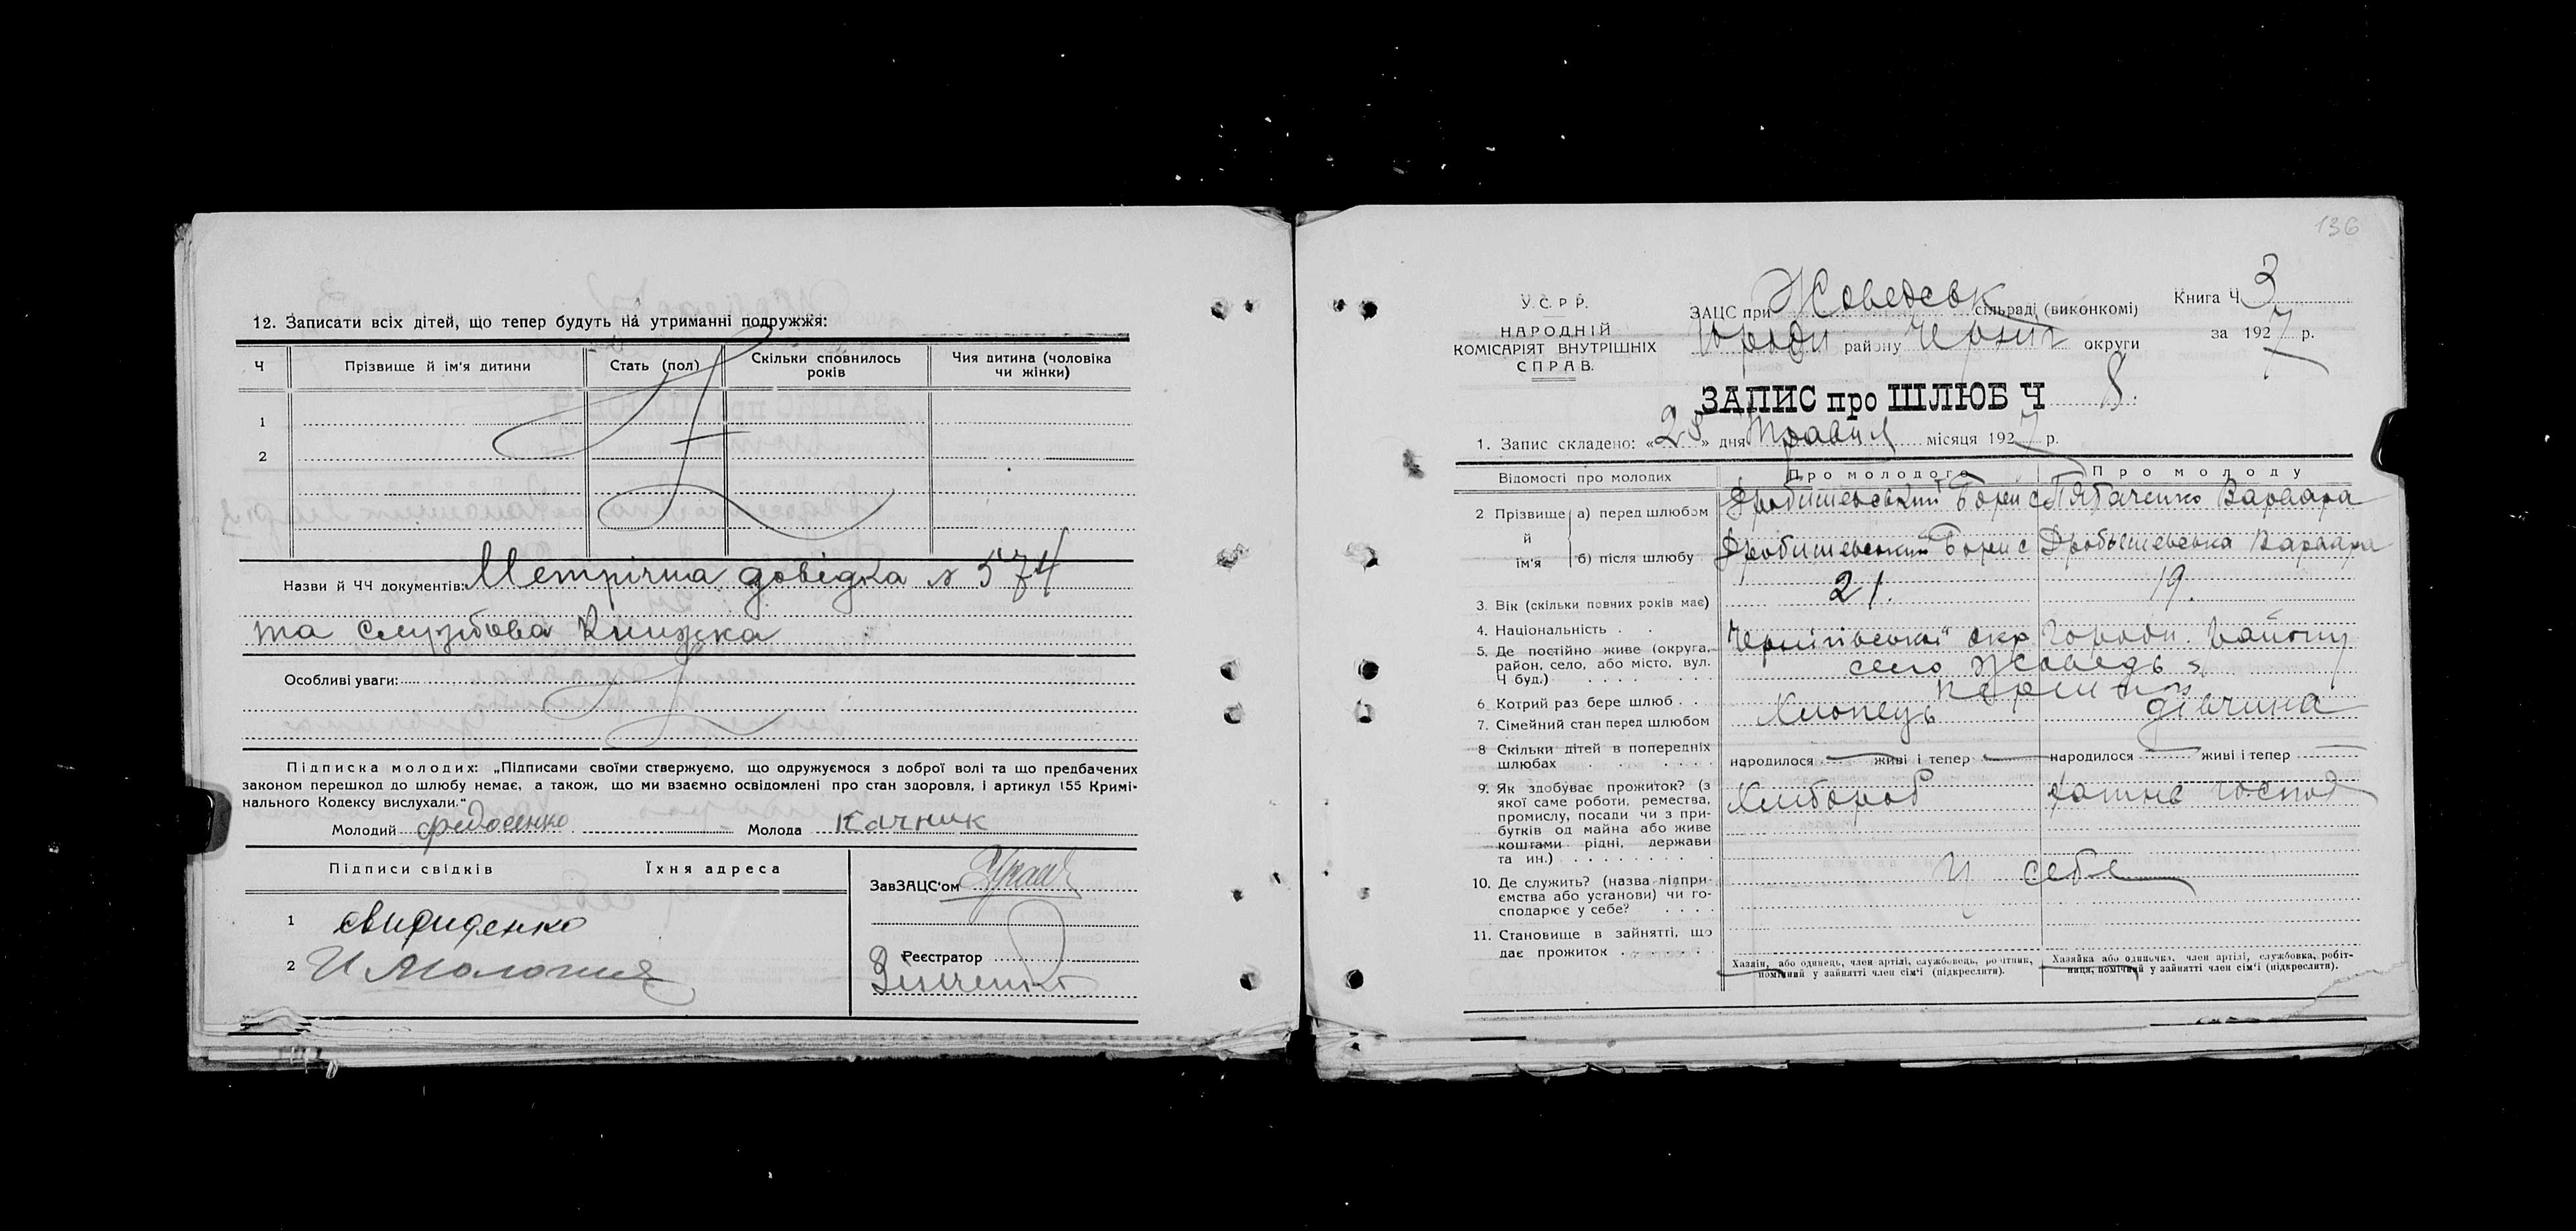 12. Записати всіх дітей, що тепер будуть на утриманні подружжя:
Ч Прізвище й ім'я дитини Стать (пол) Скільки сповнилось років Чия дитина (чоловіка чи жінки)
1
2
Назви й ЧЧ документів: Метрічна довідка № 574
та службова Книжка
Особливі уваги:
Підписка молодих: „Підписами своїми ствержуємо, що одружуємося з доброї волі та що предбачених
законом перешкод до шлюбу немає, а також, що ми взаємно освідомлені про стан здоровля, і артикул 155 Кримі-
нального Кодексу вислухали."
Молодий Федосенко Молода Качник
Підписи свідків Їхня адреса
ЗавЗАЦС'ом
1
2 И Молочия
Реєстратор
Зінченко
136
У.С.Р.Р.
НАРОДНІЙ
КОМІСАРІЯТ ВНУТРІШНІХ
СПРАВ.
ЗАЦС при Жоведськ сільраді (виконкомі)
Городн району Черніг округи
Книга Ч 3
за 1927 р.
ЗАПИС про ШЛЮБ Ч 8.
1. Запис складено: «28» дня Травня місяця 1927 р.
Відомості про молодих Про молодого Про молоду
2 Прізвище й ім'я а) перед шлюбом Дробишевський Борис Варвара
б) після шлюбу Дробишевський Борис Дробышевська Варвара
3. Вік (скільки повних років має) 21. 19.
4. Національність
5. Де постійно живе (округа, район, село, або місто, вул. Ч буд.) Чернігівської окр Городн. Району
село Жоведь
6 Котрий раз бере шлюб перший
7. Сімейний стан перед шлюбом Хлопець дівчина
8 Скільки дітей в попередніх шлюбах народилося живі і тепер народилося живі і тепер
9. Як здобуває прожиток? (з якої саме роботи, ремества, промислу, посади чи з прибутків од майна або живе коштами рідні, держави та ин.) Хлібороб хатнє господ
10. Де служить? (назва підприємства або установи) чи господарює у себе? У себе
11. Становище в зайнятті, що дає прожиток
Хазяїн, або одинець, член артілі, службовець, робітник, помічний у зайнятті член сім'ї (підкреслити).
Хазяйка або одиночка, член артілі, службовка, робітниця, помічний у зайнятті член сім'ї (підкреслити).